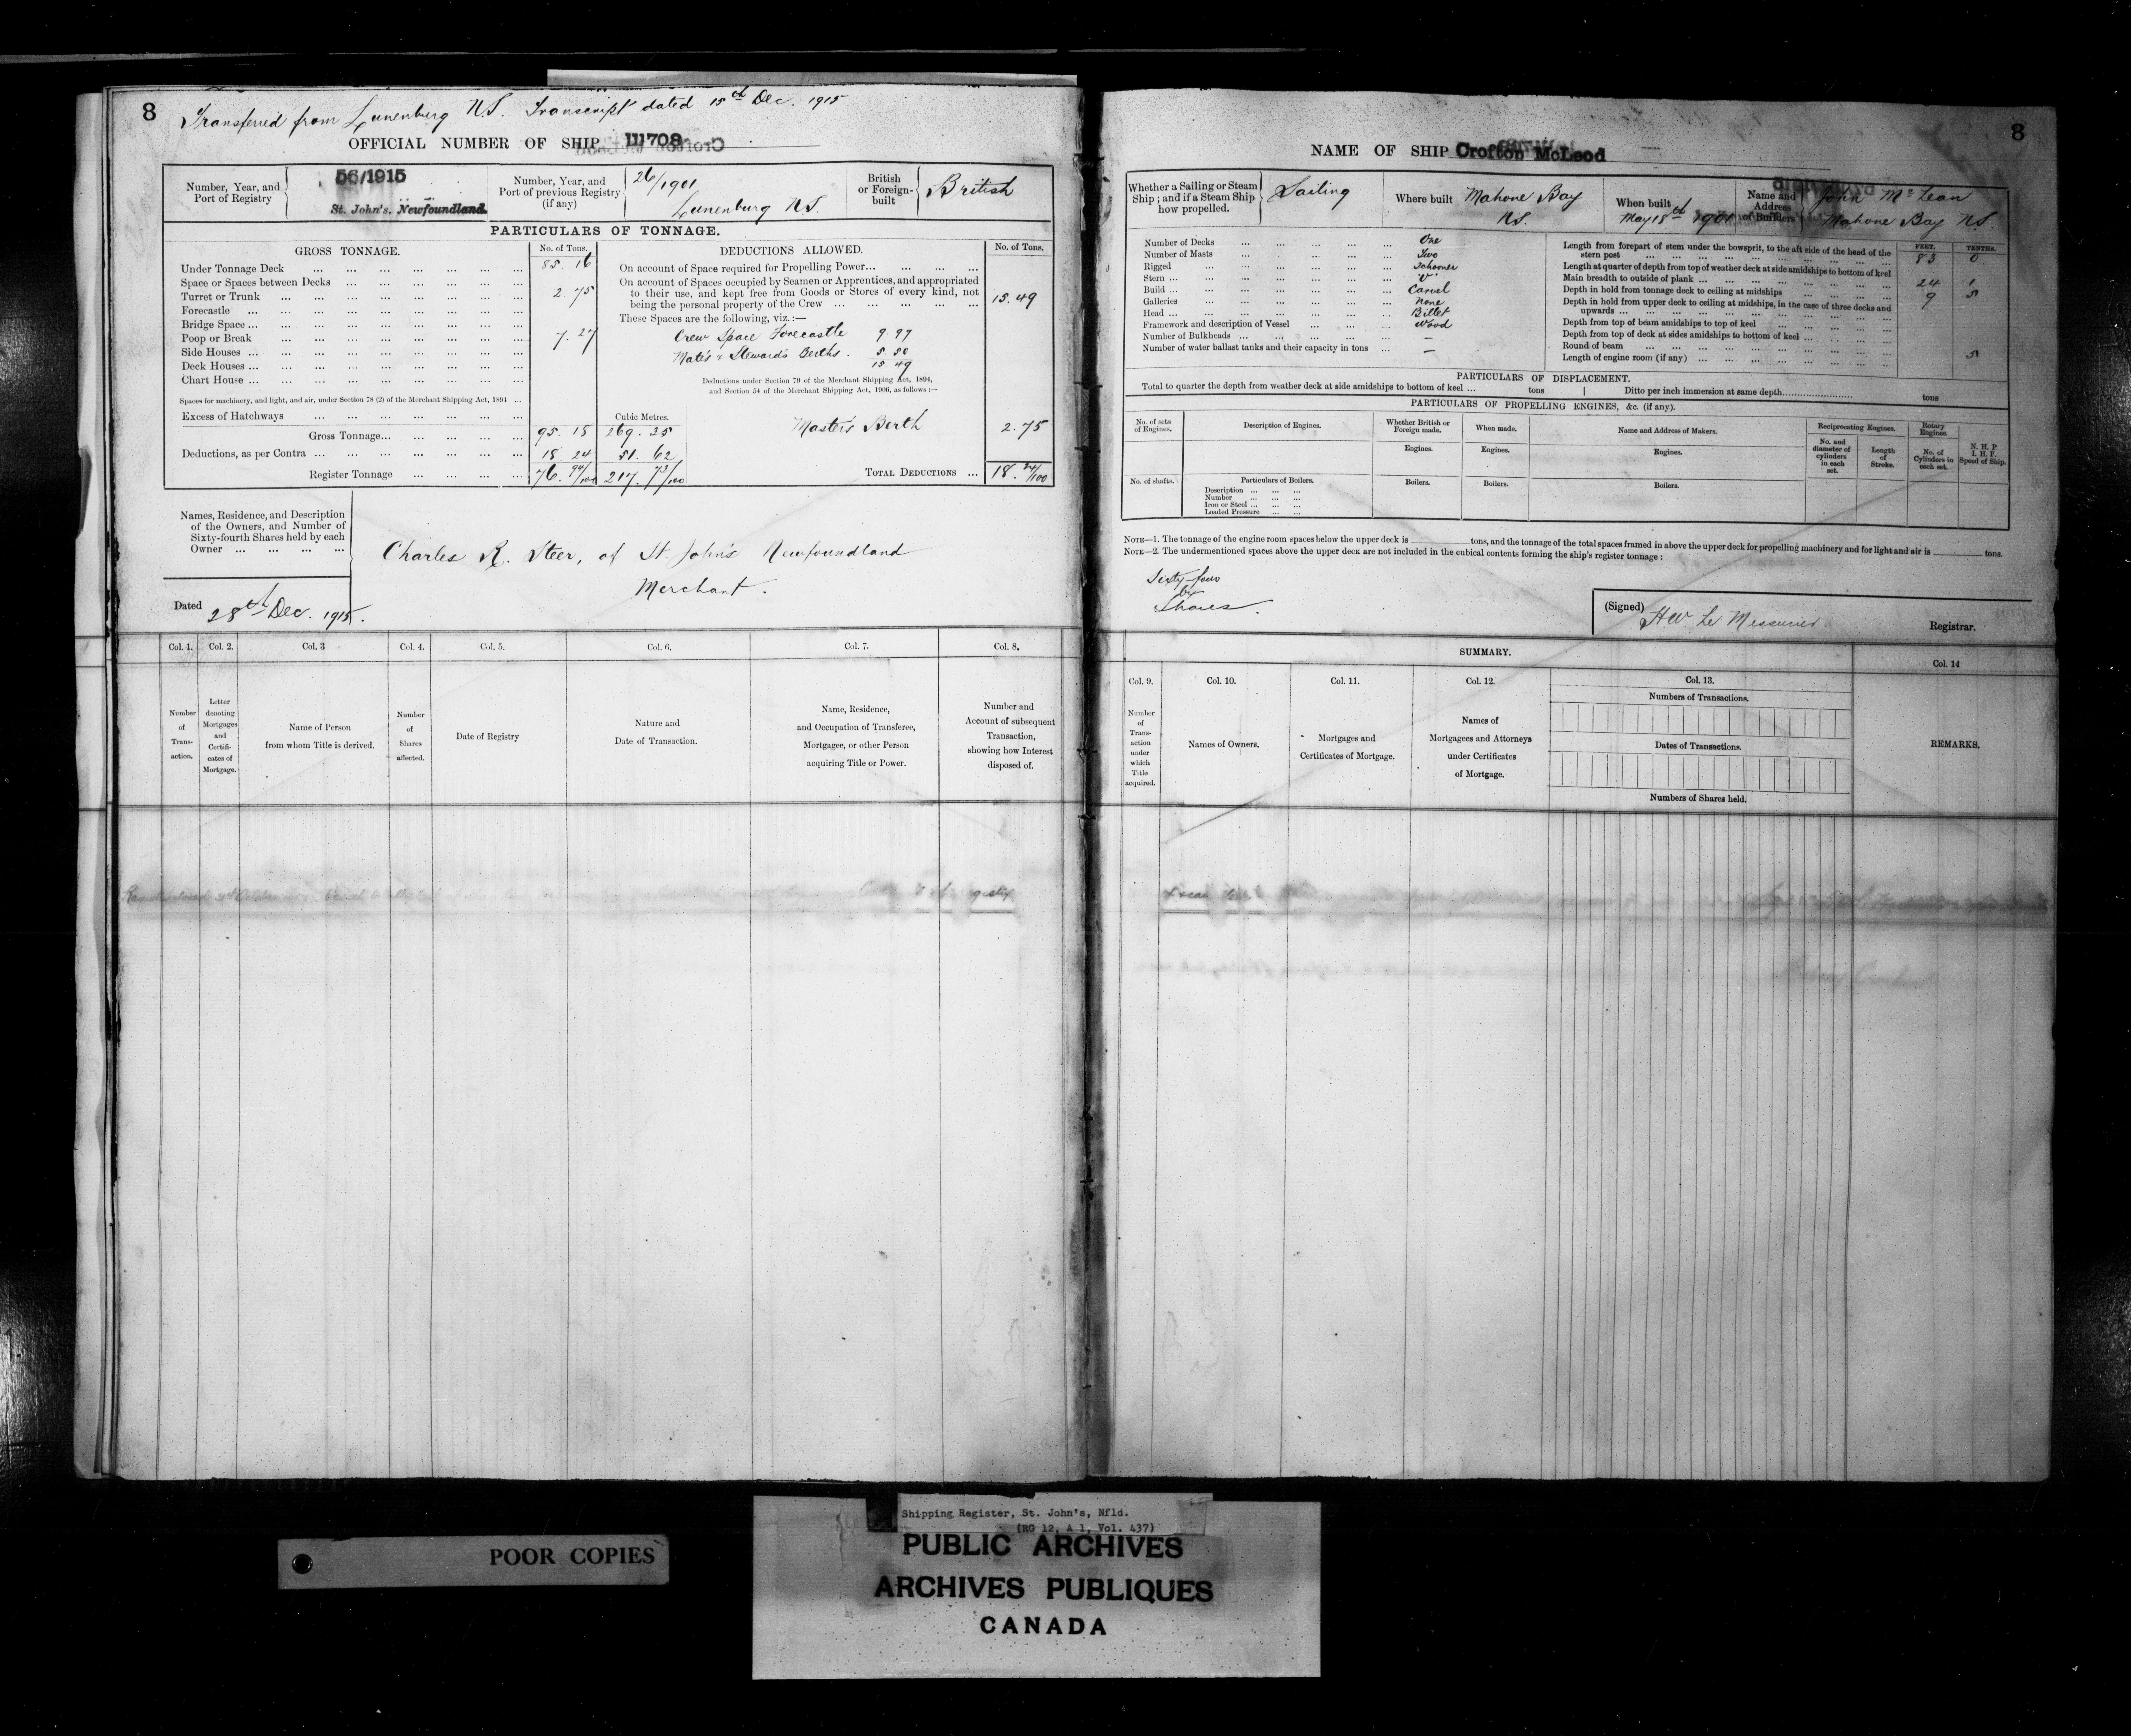 8
Transferred from Lunenburg N.S. Transcript dated 15th Dec. 1915
OFFICIAL NUMBER OF SHIP 111708
Number, Year, and Port of Registry
56/1915
St. John's, Newfoundland.
Number, Year, and Port of previous Registry (if any)
26/1901
Lunenburg N.S.
British or Foreign-built
British
PARTICULARS OF TONNAGE.
GROSS TONNAGE. No. of Tons.
Under Tonnage Deck 85.16
Space or Spaces between Decks
Turret or Trunk 2.75
Forecastle
Bridge Space
Poop or Break 7.27
Side Houses
Deck Houses
Chart House
Spaces for machinery, and light, and air, under Section 78 (2) of the Merchant Shipping Act, 1894
Excess of Hatchways
Cubic Metres.
Gross Tonnage 95.18 269.35
Deductions, as per Contra 18.24 51.62
Register Tonnage 76.94/100 217.73/100
DEDUCTIONS ALLOWED. No. of Tons.
On account of Space required for Propelling Power
On account of Spaces occupied by Seamen or Apprentices, and appropriated
to their use, and kept free from Goods or Stores of every kind, not
being the personal property of the Crew 15.49
These Spaces are the following, viz.:—
Crew Space Forecastle 9.99
Mate's & Steward's Berths. 5.50
15 49
Deductions under Section 79 of the Merchant Shipping Act, 1894,
and Section 54 of the Merchant Shipping Act, 1906, as follows:—
Master's Berth 2.75
TOTAL DEDUCTIONS 18.24/100
Names, Residence, and Description
of the Owners, and Number of
Sixty-fourth Shares held by each
Owner
Charles R. Steer, of St. John's Newfoundland
Merchant.
Dated 28th Dec. 1915.
Col. 1. Col. 2. Col. 3 Col. 4. Col. 5. Col. 6. Col. 7. Col. 8.
Number of Trans-action.
Letter denoting Mortgages and Certifi-cates of Mortgage.
Name of Person from whom Title is derived.
Number of Shares affected.
Date of Registry
Nature and Date of Transaction.
Name, Residence, and Occupation of Transferee, Mortgagee, or other Person acquiring Title or Power.
Number and Account of subsequent Transaction, showing how Interest disposed of.
8
NAME OF SHIP Crofton McLeod
Whether a Sailing or Steam Ship; and if a Steam Ship how propelled.
Sailing
Where built
Mahone Bay
N.S.
When built
May 18th 1901
Name and Address of Builders
John McLean
Mahone Bay N.S.
Number of Decks One
Number of Masts Two
Rigged Schooner
Stern "V"
Build Carvel
Galleries None
Head Billet
Framework and description of Vessel Wood
Number of Bulkheads —
Number of water ballast tanks and their capacity in tons —
FEET. TENTHS.
Length from forepart of stem under the bowsprit, to the aft side of the head of the
stern post 83 0
Length at quarter of depth from top of weather deck at side amidships to bottom of keel
Main breadth to outside of plank 24 1
Depth in hold from tonnage deck to ceiling at midships 9 5
Depth in hold from upper deck to ceiling at midships, in the case of three decks and
upwards
Depth from top of beam amidships to top of keel
Depth from top of deck at sides amidships to bottom of keel
Round of beam 5
Length of engine room (if any)
PARTICULARS OF DISPLACEMENT.
Total to quarter the depth from weather deck at side amidships to bottom of keel tons Ditto per inch immersion at same depth tons
PARTICULARS OF PROPELLING ENGINES, &c. (if any).
No. of sets of Engines.
Description of Engines.
Whether British or Foreign made.
When made.
Name and Address of Makers.
Reciprocating Engines.
Rotary Engines
N. H. P
I. H. P.
Speed of Ship.
Engines. Engines. Engines.
No. and diameter of cylinders in each set.
Length of Stroke.
No. of Cylinders in each set.
No. of shafts.
Particulars of Boilers.
Description
Number
Iron or Steel
Loaded Pressure
Boilers. Boilers. Boilers.
NOTE—1. The tonnage of the engine room spaces below the upper deck is tons, and the tonnage of the total spaces framed in above the upper deck for propelling machinery and for light and air is tons.
NOTE—2. The undermentioned spaces above the upper deck are not included in the cubical contents forming the ship's register tonnage:
Sixty-four
64
Shares.
(Signed) H W Le Messurier
Registrar.
SUMMARY.
Col. 9. Col. 10. Col. 11. Col. 12. Col. 13. Col. 14
Number of Trans-action under which Title acquired.
Names of Owners.
Mortgages and Certificates of Mortgage.
Names of Mortgagees and Attorneys under Certificates of Mortgage.
Numbers of Transactions.
Dates of Transactions.
Numbers of Shares held.
REMARKS.
POOR COPIES
Shipping Register, St. John's, Nfld.
(RG 12, A 1, Vol. 437)
PUBLIC ARCHIVES
ARCHIVES PUBLIQUES
CANADA